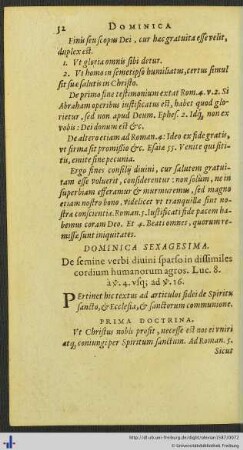 52 DOMINICA
Finis seu scopus Dei, cur hæc gratuita esse velit,
duplex est.
1. Vt gloria omnis sibi detur.
2. Vt homo in semetipso humiliatus, certus simul
sit suæ salutis in Christo.
De primo fine testimonium extat Rom. 4. v. 2. Si
Abraham operibus iustificatus est, habet quod glo-
rietur, sed non apud Deum. Ephes. 2. Idq́; non ex
vobis: Dei donum est &c.
De altero etiam ad Roman. 4: Ideo ex fide gratis,
vt firma sit promissio &c. Esaiæ 55. Venite qui siti-
tis, emite sine pecunia.
Ergo fines consilij diuini, cur salutem gratui-
tam esse voluerit, considerentur: non solùm, ne in
superbiam efferamur & murmuremus, sed magno
etiam nostro bono, videlicet vt tranquilla sint no-
stra conscientia. Roman. 5. Iustificati fide pacem ha-
bemus coram Deo. Et 4. Beati omnes, quorum re-
missæ sunt iniquitates.
DOMINICA SEXAGESIMA.
De semine verbi diuini sparso in dissimiles
cordium humanorum agros. Luc. 8.
à v. 4. vsq; ad v. 16.
Pertinet hic textus ad articulos fidei de Spiritu
sancto, & Ecclesia, & sanctorum communione.
PRIMA DOCTRINA.
Vt Christus nobis prosit, necesse est nos ei vniri
atq; coniungi per Spiritum sanctum. Ad Roman. 5.
Sicut